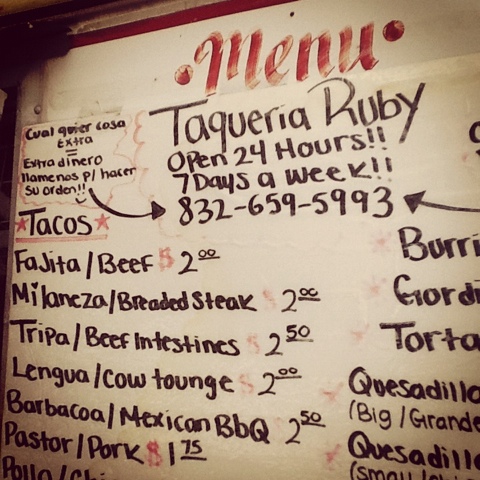 Menu
Cualquier cosa
Extra
=
Extra dinero
llamenos p/ hacer
su orden!!
Taqueria Ruby
Open 24 Hours!!
7 Days a week!!
832-659-5993
Tacos
Fajita/Beef $2.00
Milaneza/Breaded Steak $2.00
Tripa/Beef Intestines $2.50
Lengua/Cow tounge $2.00
Barbacoa/Mexican BbQ 2.50
Pastor/Pork $1.75
Pollo/Chi
Burri
Gordi
Torta
Quesadilla
(Big/Grande
Quesadilla